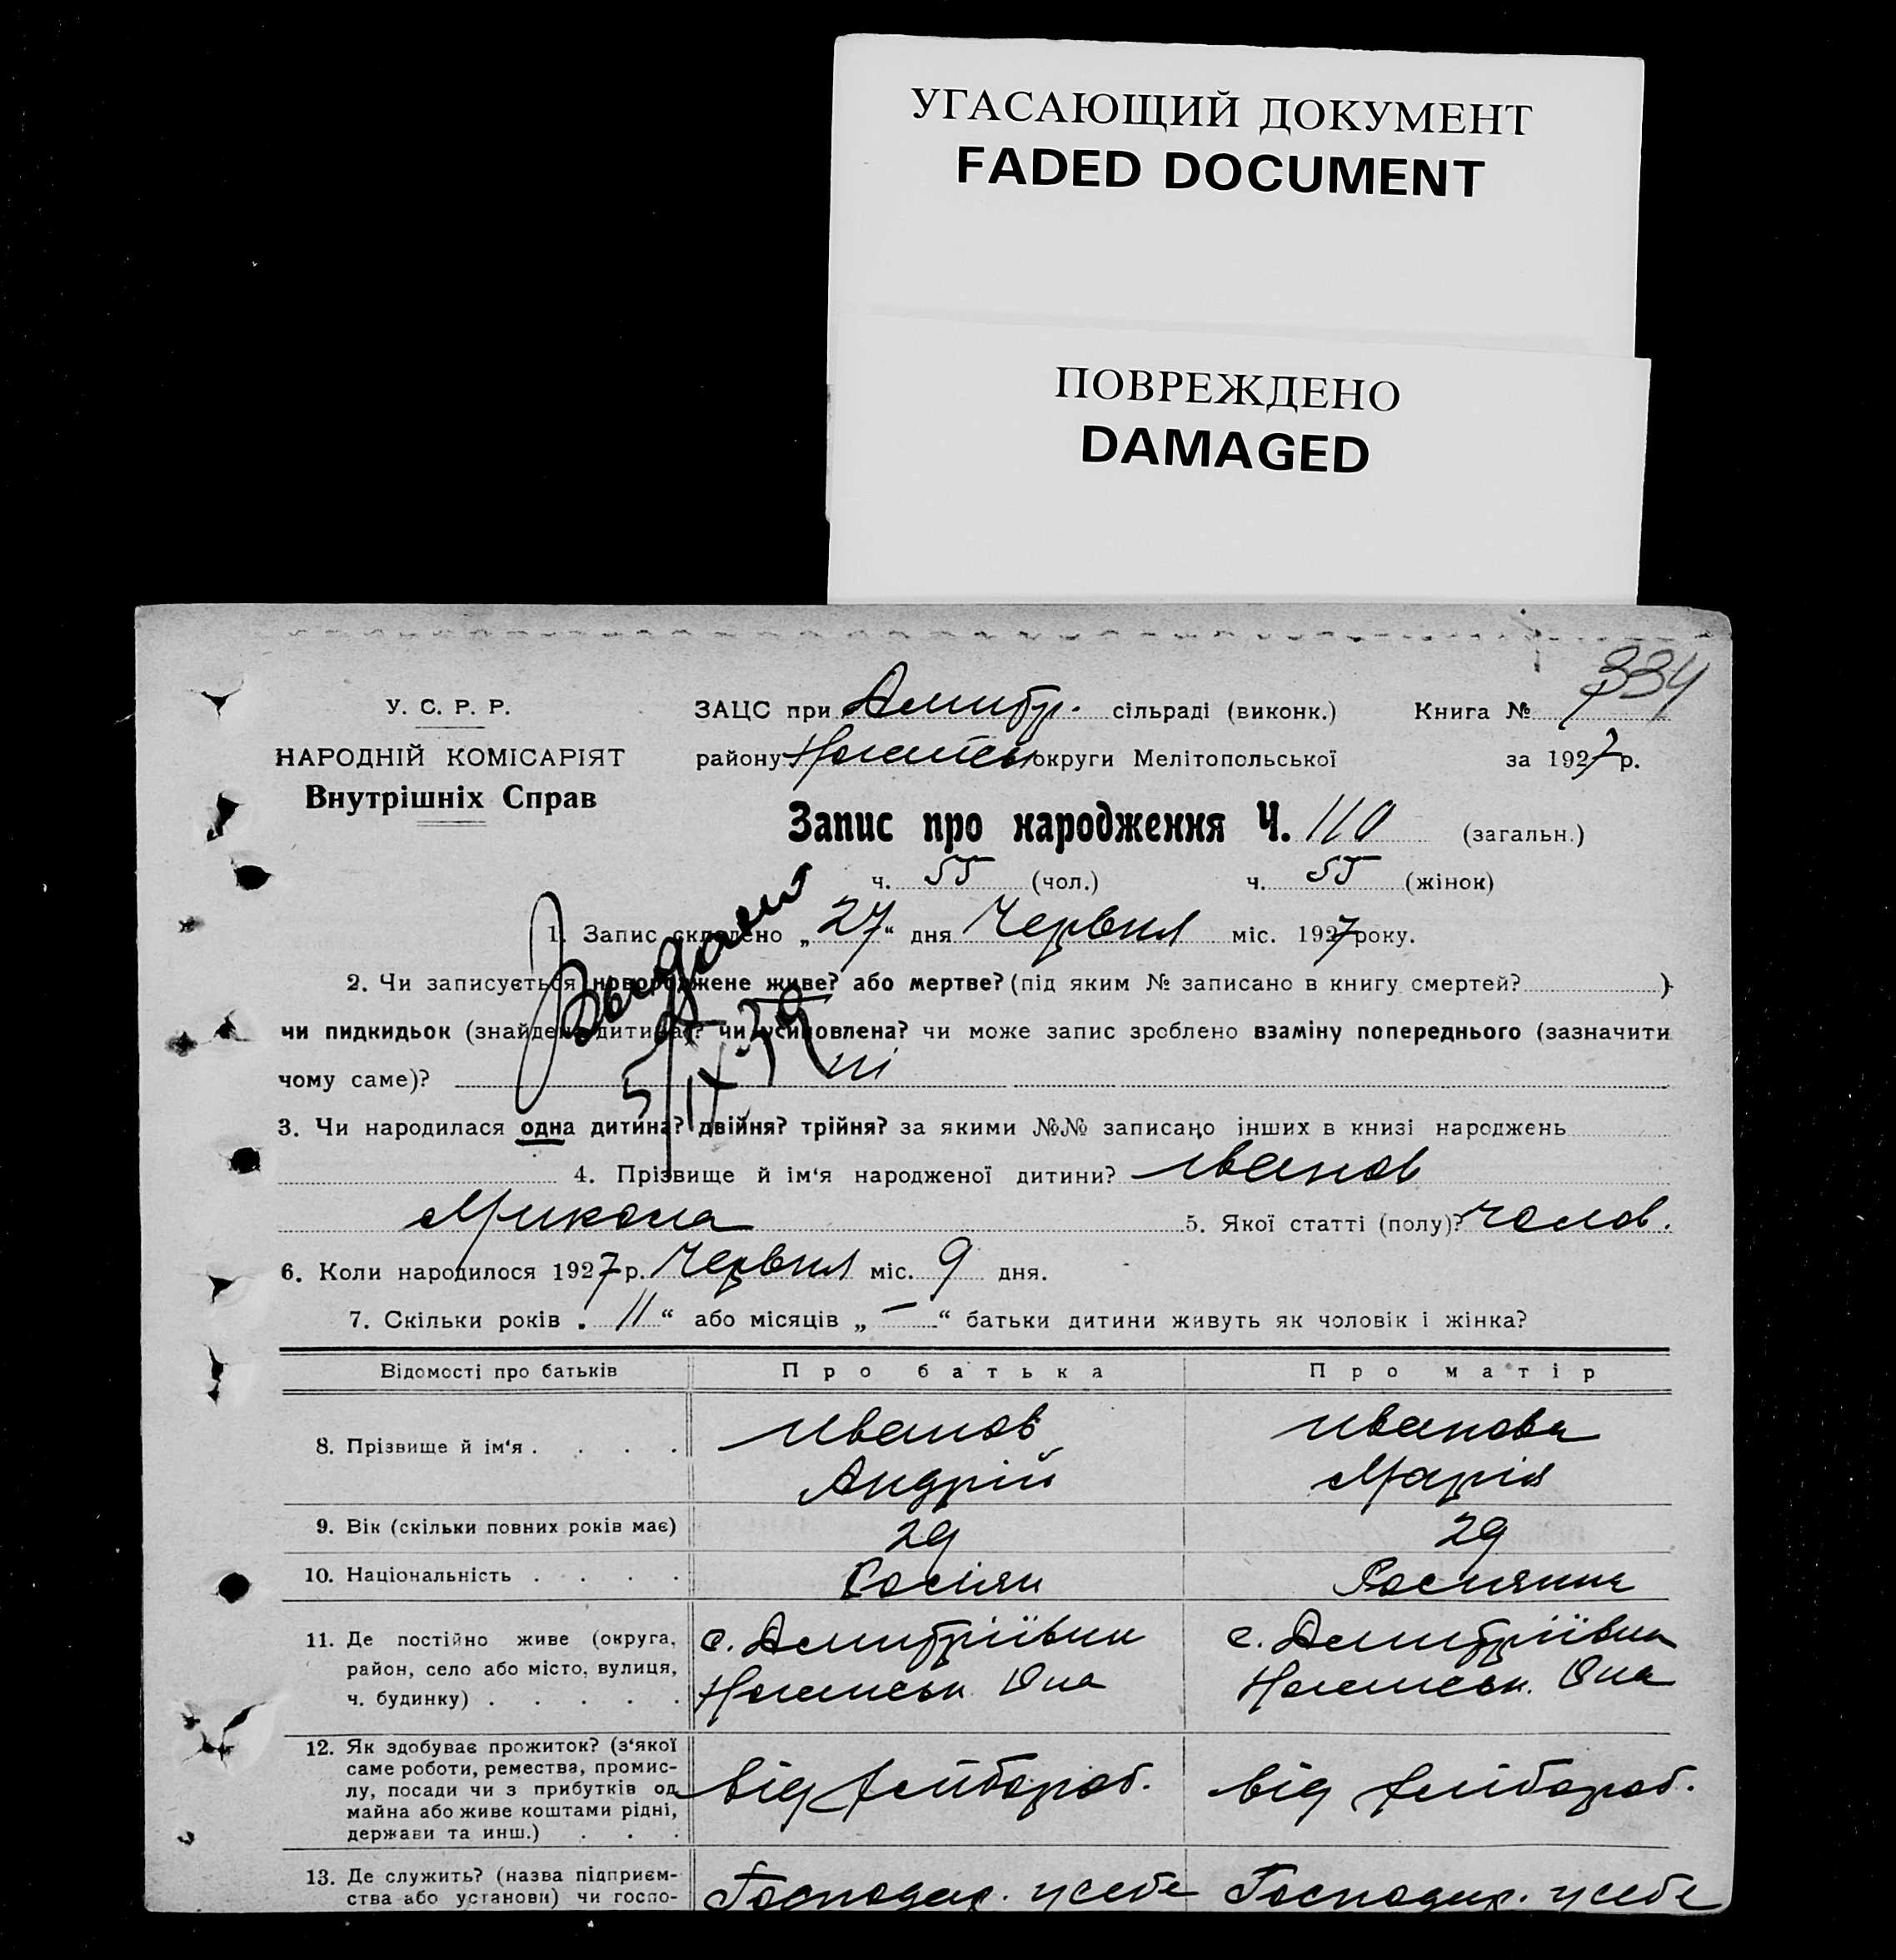 УГАСАЮЩИЙ ДОКУМЕНТ
FADED DOCUMENT
ПОВРЕЖДЕНО
DAMAGED
334
У. С. Р. Р.
НАРОДНІЙ КОМІСАРІЯТ
Внутрішніх Справ
ЗАЦС при Дмитр. сільраді (виконк.) Книга №
району округи Мелітопольської за 1927 р.
Запис про народження Ч. 110 (загальн.)
ч. 55 (чол.) ч. 55 (жінок)
1. Запис складено „27“ дня Червня міс. 1927 року.
2. Чи записується новороджене живе? або мертве? (під яким № записано в книгу смертей? )
чи пидкидьок (знайдена дитина)? чи усиновлена? чи може запис зроблено взаміну попереднього (зазначити
чому саме)? ні
3. Чи народилася одна дитина? двійня? трійня? за якими №№ записано інших в книзі народжень
4. Прізвище й ім‘я народженої дитини? Иванов
Микола 5. Якої статті (полу)? чолов.
6. Коли народилося 1927 р. Червня міс. 9 дня.
7. Скільки років „11“ або місяців „—“ батьки дитини живуть як чоловік і жінка?
Відомості про батьків Про батька Про матір
8. Прізвище й ім‘я . . . . Иванов Андрій Иванова Марія
9. Вік (скільки повних років має) 29 29
10. Національність . . . . Росіян Росиянка
11. Де постійно живе (округа, с. Дмитріївки с. Дмитріївка
район, село або місто, вулиця,
ч. будинку) . . . . .
12. Як здобуває прожиток? (з‘якої
саме роботи, ремества, промис-
лу, посади чи з прибутків од від хлібороб. від хлібороб.
майна або живе коштами рідні,
держави та инш.) . . .
13. Де служить? (назва підприєм-
ства або установи) чи госпо- Господар. у себе Господар. у себе
Выдано
5/IX-39